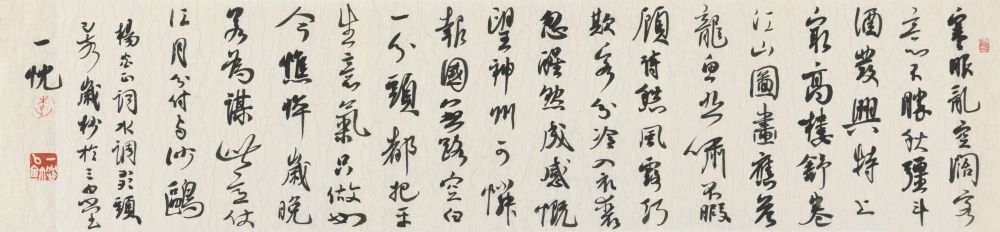 寒眼亂空闊客
意不勝秋彊斗
酒發興特上
最高樓舒卷
江山圖畫應答
龍魚悲嘯不暇
顧詩愁風露巧
欺客分冷入衣裘
忽醒然成感慨
望神州可憐
報國無路空白
一分頭都把平
生意氣只做如
今憔悴歲晚
若為謀此意仗
江月分付與沙鷗
楊炎正詞水調歌頭
歲杪於三
一忱
李